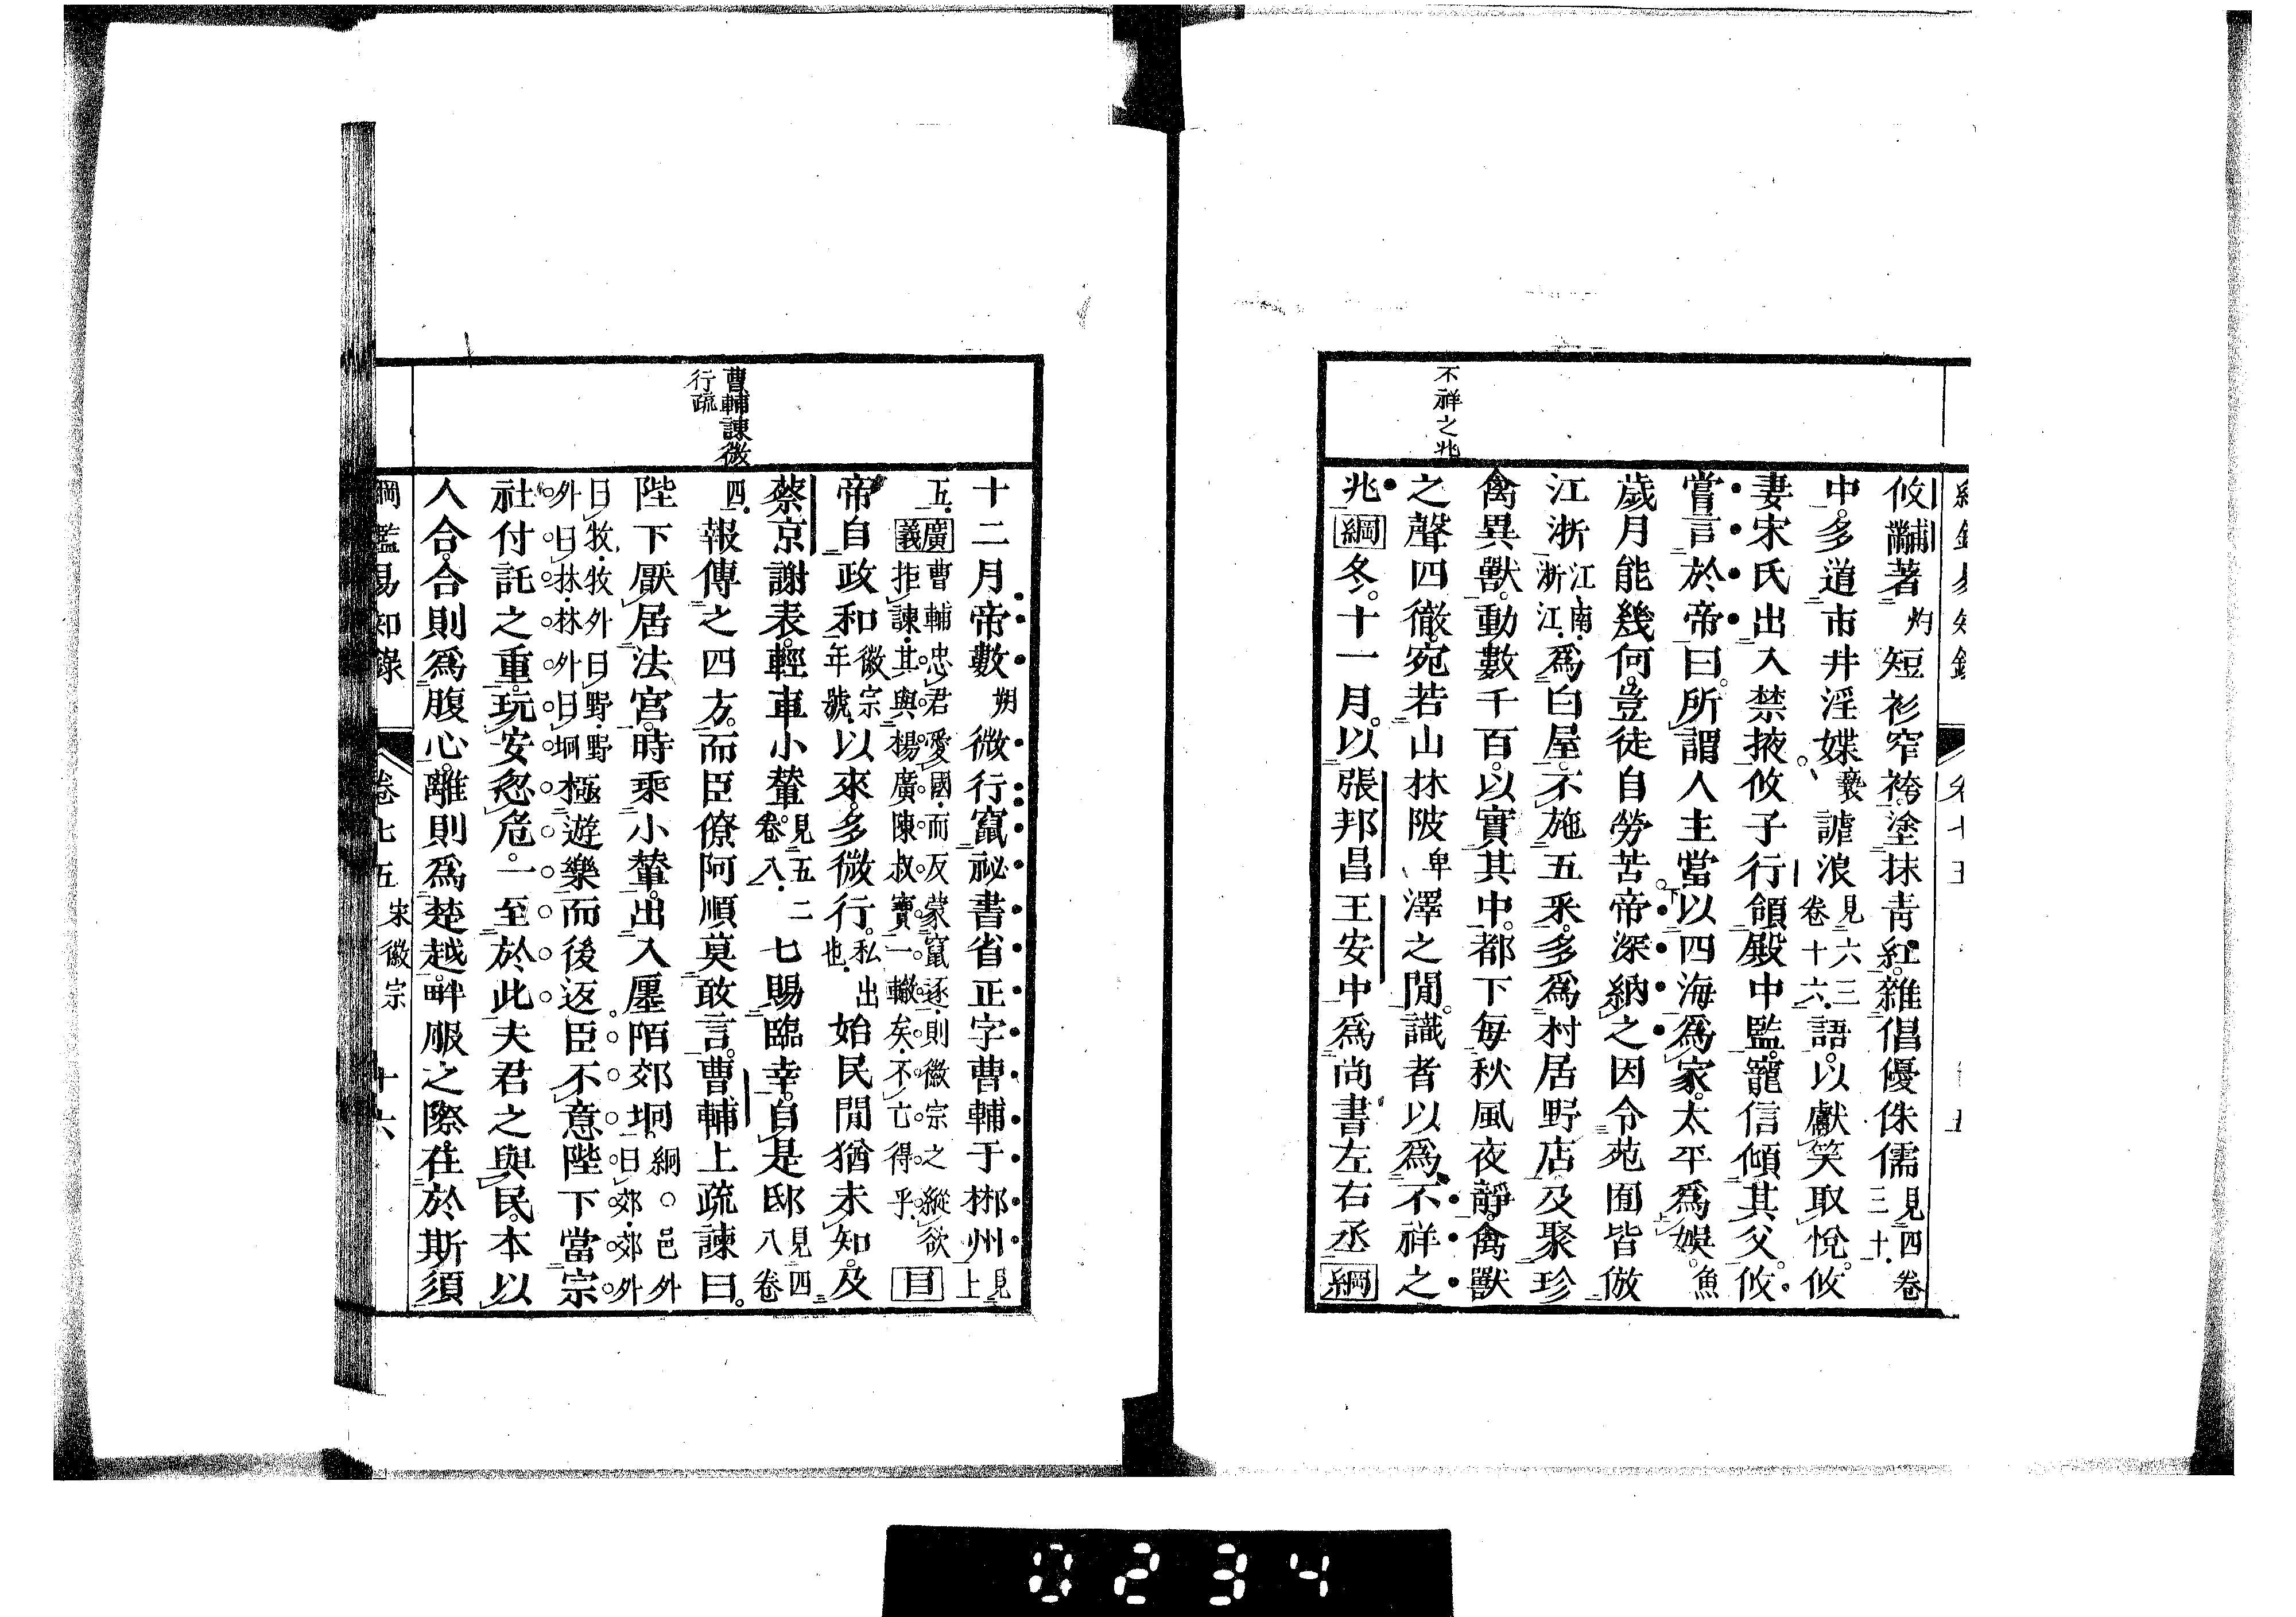 不祥之兆
攸黼著灼短衫窄袴塗抹青紅雜倡優侏儒見四卷三十
中多道市井淫媟褻謔浪見六三卷十六語以獻笑取悅攸
妻宋氏出入禁掖攸子行領殿中監寵信傾其父攸
嘗言於帝曰所謂人主當以四海爲家太平爲娛魚
歲月能幾何豈徒自勞苦帝深納之因令苑囿皆倣
江浙江南浙江爲白屋不施五采多爲村居野店及聚珍
禽異獸動數千百以實其中都下每秋風夜靜禽獸
之聲四徹宛若山林陂卑澤之閒識者以爲不祥之
兆綱冬十一月以張邦昌王安中爲尚書左右丞綱
曹輔諫微
行疏
十二月帝數朔微行竄祕書省正字曹輔于郴州見上
五廣義曹輔忠君愛國而反蒙竄逐則徽宗之縱欲拒諫其與楊廣陳叔寶一轍矣不亡得乎目
帝自政和徽宗年號以來多微行私出也始民閒猶未知及
蔡京謝表輕車小輦見五二卷八七賜臨幸自是邸見四八卷
四報傳之四方而臣僚阿順莫敢言曹輔上疏諫曰
陛下厭居法宮時乘小輦出入廛陌郊坰絅○邑外曰郊郊外
曰牧牧外曰野野外曰林林外曰坰極遊樂而後返臣不意陛下當宗
社付託之重玩安忽危一至於此夫君之與民本以
人合合則爲腹心離則爲楚越畔服之際在於斯須
綱鑑易知錄 卷七五 宋徽宗 十六
0234